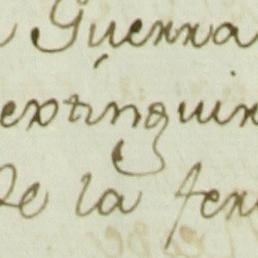 Guerra
extinguir
de la